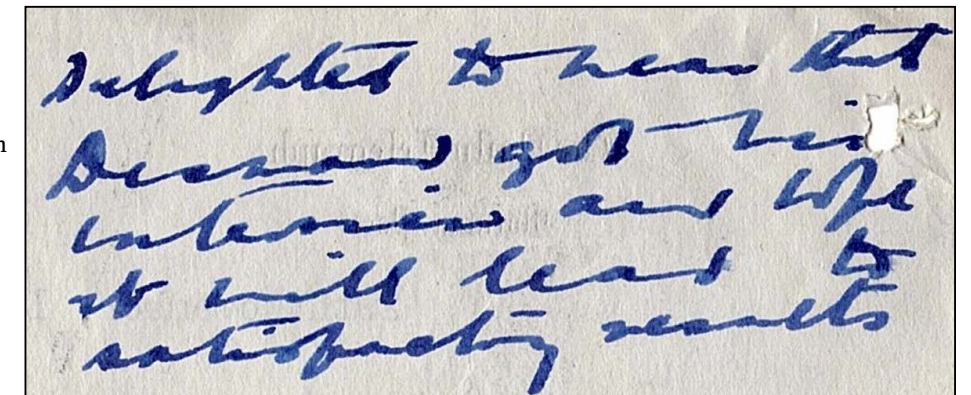 Delighted to hear that
n
Desmond got hi
interview and hope
it will lead to
satisfactory results